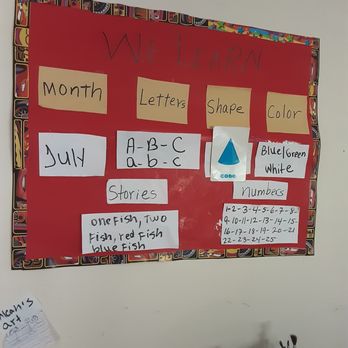 We Learn
Month
Letters
Shape
Color
July
A-B-C
a-b-c
cone
Blue/Green
White
Stories
Numbers
one Fish, Two
Fish, red Fish
blue Fish
1-2-3-4-5-6-7-8-
9-10-11-12-13-14-15-
16-17-18-19-20-21
22-23-24-25
art